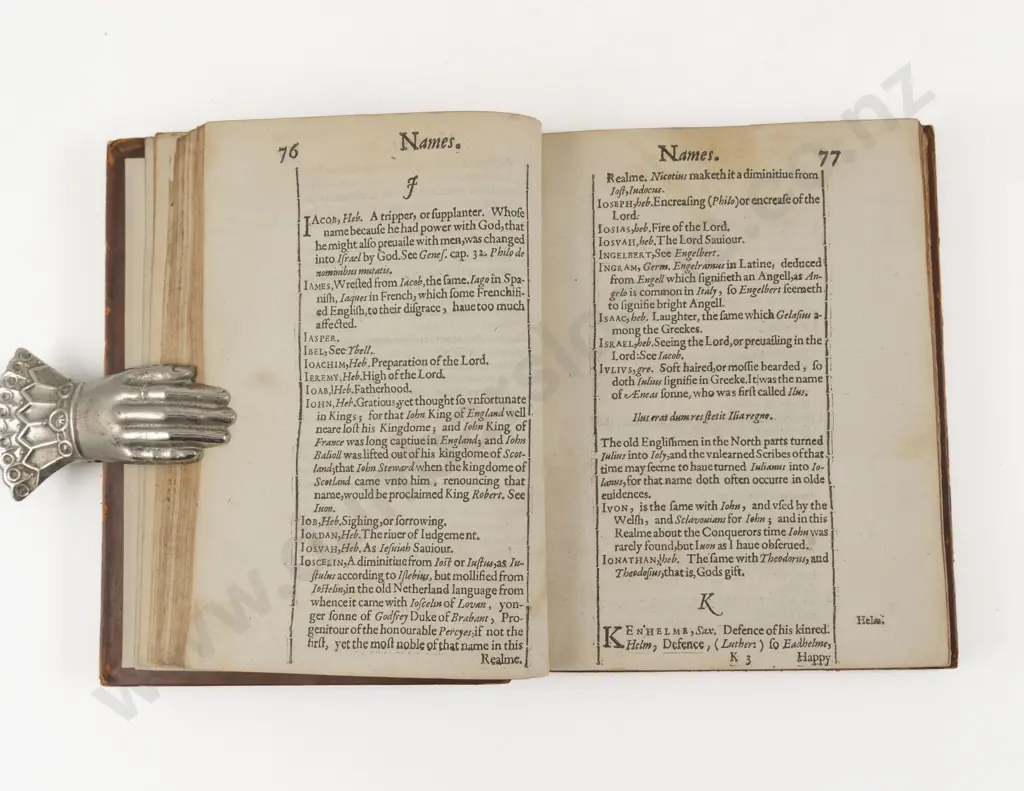 76 Names.
J
IACOB, Heb. A tripper, or ſupplanter. Whoſe
name becauſe he had power with God, that
he might alſo preuaile with men, was changed
into Iſrael by God. See Geneſ. cap. 32. Philo de
nominibus mutatis.
IAMES, Wreſted from Iacob, the ſame. Iago in Spa-
niſh, Iaques in French, which ſome Frenchifi-
ed Engliſh, to their diſgrace, haue too much
affected.
IASPER.
IBEL, See Tbell.
IOACHIM, Heb. Preparation of the Lord.
IEREMY, Heb. High of the Lord.
IOAB, Heb. Fatherhood.
IOHN, Heb. Gratious, yet thought ſo vnfortunate
in Kings; for that Iohn King of England well
neare loſt his Kingdome; and Iohn King of
France was long captiue in England; and Iohn
Balioll was lifted out of his kingdome of Scot-
land; that Iohn Steward when the kingdome of
Scotland came vnto him, renouncing that
name, would be proclaimed King Robert. See
Iuon.
IOB, Heb. Sighing, or ſorrowing.
IORDAN, Heb. The riuer of Iudgement.
IOSVAH, Heb. As Ieſuiah Sauiour.
IOSCELIN, A diminitiue from Ioſt or Iuſtus, as Iu-
ſtulus according to Iſlebius, but mollified from
Ioſtelin, in the old Netherland language from
whence it came with Ioſcelin of Lovan, yon-
ger ſonne of Godfrey Duke of Brabant, Pro-
genitour of the honourable Percyes, if not the
firſt, yet the moſt noble of that name in this
Realme.
Names. 77
Realme. Nicotius maketh it a diminitiue from
Ioſt, Iudocus.
IOSEPH, heb. Encreaſing (Philo) or encreaſe of the
Lord:
IOSIAS, heb. Fire of the Lord.
IOSVAH, heb. The Lord Sauiour.
INGELBERT, See Engelbert.
INGRAM, Germ. Engelramus in Latine, deduced
from Engell which ſignifieth an Angell, as An-
gelo is common in Italy, ſo Engelbert ſeemeth
to ſignifie bright Angell.
ISAAC, heb. Laughter, the ſame which Gelaſius a-
mong the Greekes.
ISRAEL, heb. Seeing the Lord, or preuailing in the
Lord: See Iacob.
IVLIVS, gre. Soft haired, or moſſie bearded, ſo
doth Iulius ſignifie in Greeke. It was the name
of Æneas ſonne, who was firſt called Ilus.
Ilus erat dum res ſtetit Ilia regno.
The old Engliſhmen in the North parts turned
Iulius into Ioly, and the vnlearned Scribes of that
time may ſeeme to haue turned Iulianus into Io-
lanus, for that name doth often occurre in olde
euidences.
IVON, is the ſame with Iohn, and vſed by the
Welſh, and Sclavonians for Iohn; and in this
Realme about the Conquerors time Iohn was
rarely found, but Iuon as I haue obſerued.
IONATHAN, heb. The ſame with Theodorus, and
Theodoſius, that is, Gods gift.
K
KENHELME, Sax. Defence of his kinred.
Helm, Defence, (Luther:) ſo Eadhelme,
K 3 Happy
Helm.